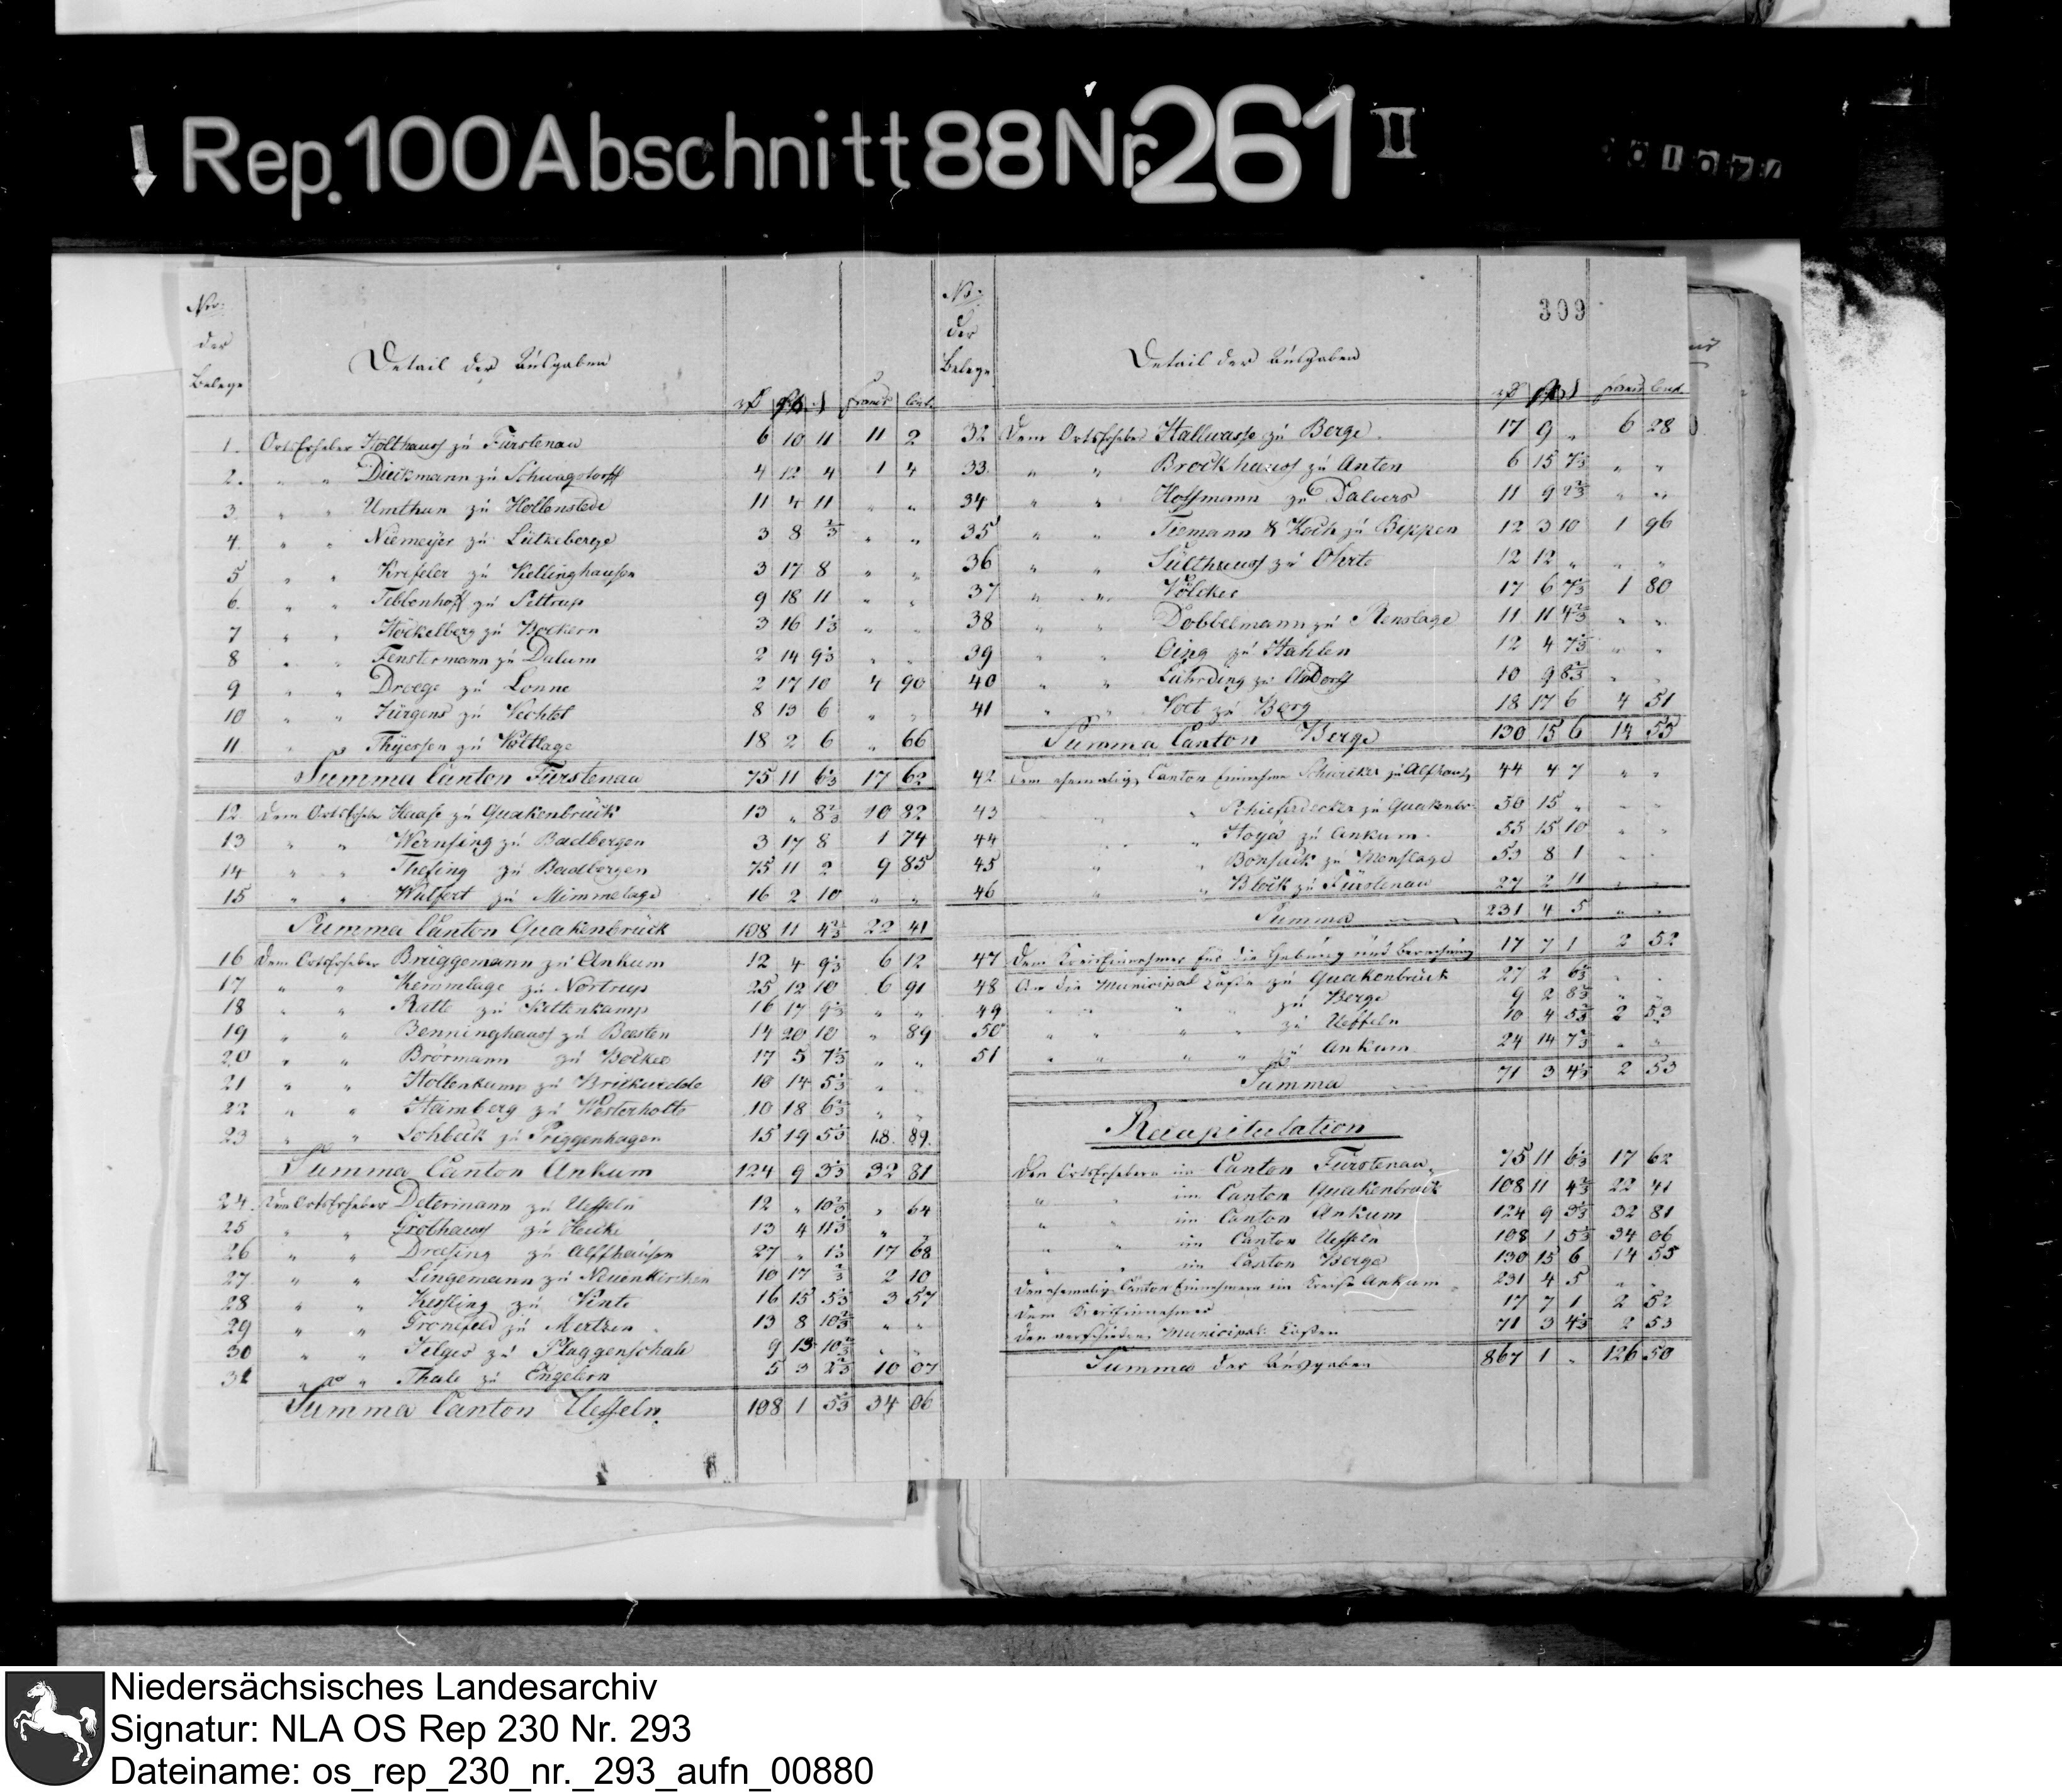 Rep. 100 Abschnitt 88 Nr. 261 II
309
Nro. der Belege
Detail der Ausgaben
rℓ gg ₰ francs Cent.
1. Ortserheber Holthaus zu Fürstenau 6 10 11 11 2
2. " " Dieckmann zu Schwagstorff 4 12 4 1 4
3 " " Umthun zu Hollenstede 11 4 11 " "
4. " " Niemeyer zu Lütkeberge 3 8 2/3 " "
5 " " Kreseler zu Kellinghausen 3 17 8 " "
6. " " Tebbenhoff zu Settrup 9 18 11 " "
7 " " Höckelberg zu Bockern 3 16 1 1/3 " "
8 " " Fenstermann zu Dalum 2 14 9 1/3 " "
9 " " Droege zu Lonne 2 17 10 4 90
10 " " Jürgens zu Vechtel 8 13 6 " "
11 " " Thyessen zu Voltlage 18 2 6 " 66
Summa Canton Fürstenau 75 11 6 1/3 17 62
12. dem Ortserheber Haase zu Quakenbrück 13 " 8 2/3 10 82
13 " " Wernsing zu Badbergen 3 17 8 1 74
14 " " Thesing zu Badbergen 75 11 2 9 85
15 " " Wulfert zu Mimmelage 16 2 10 " "
Summa Canton Quakenbrück 108 11 4 2/3 22 41
16 dem Ortserheber Brüggemann zu Ankum 12 4 9 1/3 6 12
17 " " Kemmlage zu Nortrup 25 12 10 6 91
18 " " Ratte zu Kettenkamp 16 17 9 1/3 " "
19 " " Benninghaus zu Beesten 14 20 10 " 89
20 " " Brörmann zu Bockes 17 5 7 1/3 " "
21 " " Holtenkamp zu Brickwedde 10 14 5 1/3 " "
22 " " Heimberg zu Westerholte 10 18 6 2/3 " "
23 " " Lohbeck zu Priggenhagen 15 19 5 1/3 18. 89.
Summa Canton Ankum 124 9 3 1/3 32 81
24. dem Ortserheber Determann zu Ueffeln 12 " 10 2/3 " 64
25 " " Grothaus zu Hecke 13 4 11 1/3 " "
26 " " Droesing zu Alfhausen 27 " 1 1/3 17 68
27. " " Lingemann zu Neuenkirchen 10 17 2/3 2 10
28 " " Kessling zu Vinte 16 15 5 1/3 3 57
29 " " Gronefeld zu Mertzen 13 8 10 2/3 " "
30 " " Jelges zu Plaggenschale 9 13 10 2/3 " "
31 " " Thale zu Engelern 5 3 2 2/3 10 07
Summa Canton Ueffeln 108 1 5 1/3 34 06
No. der Belege
Detail der Ausgaben
rℓ gg ₰ francs Cent.
32 dem Ortserheber Hallwasse zu Berge 17 9 " 6 28
33. " " Brockhaus zu Anten 6 15 7 1/3 " "
34 " " Hoffmann zu Dalvers 11 9 2 2/3 " "
35 " " Tiemann & Koch zu Bippen 12 3 10 1 96
36 " " Sülthaus zu Ohrte 12 12 " " "
37 " " Völcker 17 6 7 1/3 1 80
38 " " Dobbelmann zu Renslage 11 11 4 2/3 " "
39 " " Oing zu Hahlen 12 4 7 1/3 " "
40 " " Lührding zu Andorff 10 9 8 2/3 " "
41 " " Voet zu Berg 18 17 6 4 51
Summa Canton Berge 130 15 6 14 55
42 dem ehemalig. Canton Einnehmer Schericker zu Alfhausen 44 4 7 " "
43 " Schieferdecker zu Quakenbr. 50 15 " " "
44 " " Hoya zu Ankum 55 15 10 " "
45 " " Bonsack zu Menslage 53 8 1 " "
46 " " Block zu Fürstenau 27 2 11 " "
Summa 231 4 5 " "
47 dem Kreis Einnehmer für die Hebung und Berechnung 17 7 1 2 52
48 An die Municipal Caßen zu Quakenbrück 27 2 6 1/3 " "
49 " " " " zu Berge 9 2 8 2/3 " "
50 " " " " zu Ueffeln 10 4 5 2/3 2 53
51 " " " " zu Ankum 24 14 7 2/3 " "
Summa 71 3 4 1/3 2 53
Recapitulation
Den Ortserhebern im Canton Fürstenau 75 11 6 1/3 17 62
" " im Canton Quakenbrück 108 11 4 2/3 22 41
" " im Canton Ankum 124 9 3 1/3 32 81
" " im Canton Ueffeln 108 1 5 1/3 34 06
" " im Canton Berge 130 15 6 14 55
Den ehemalig. Canton Einnehmern im Kreise Ankum 231 4 5 " "
Dem Kreiseinnehmer 17 7 1 2 52
Den verschieden. Municipal Caßen 71 3 4 1/3 2 53
Summa der Ausgaben 867 1 " 126 50
Niedersächsisches Landesarchiv
Signatur: NLA OS Rep 230 Nr. 293
Dateiname: os_rep_230_nr._293_aufn_00880